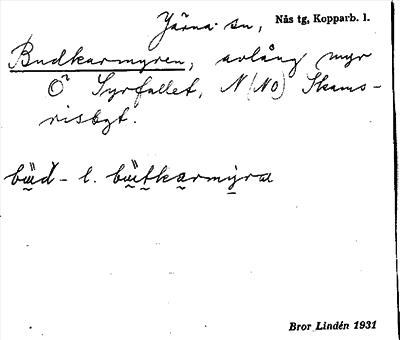 Järna sn, Nås tg, Kopparb. l.
Budkarmyren, avlång myr
Ö Syrfallet, N (NO) Skams-
risbyt.
bŭ̈d- l. bŭ̈tkarmyra
Bror Lindén 1931